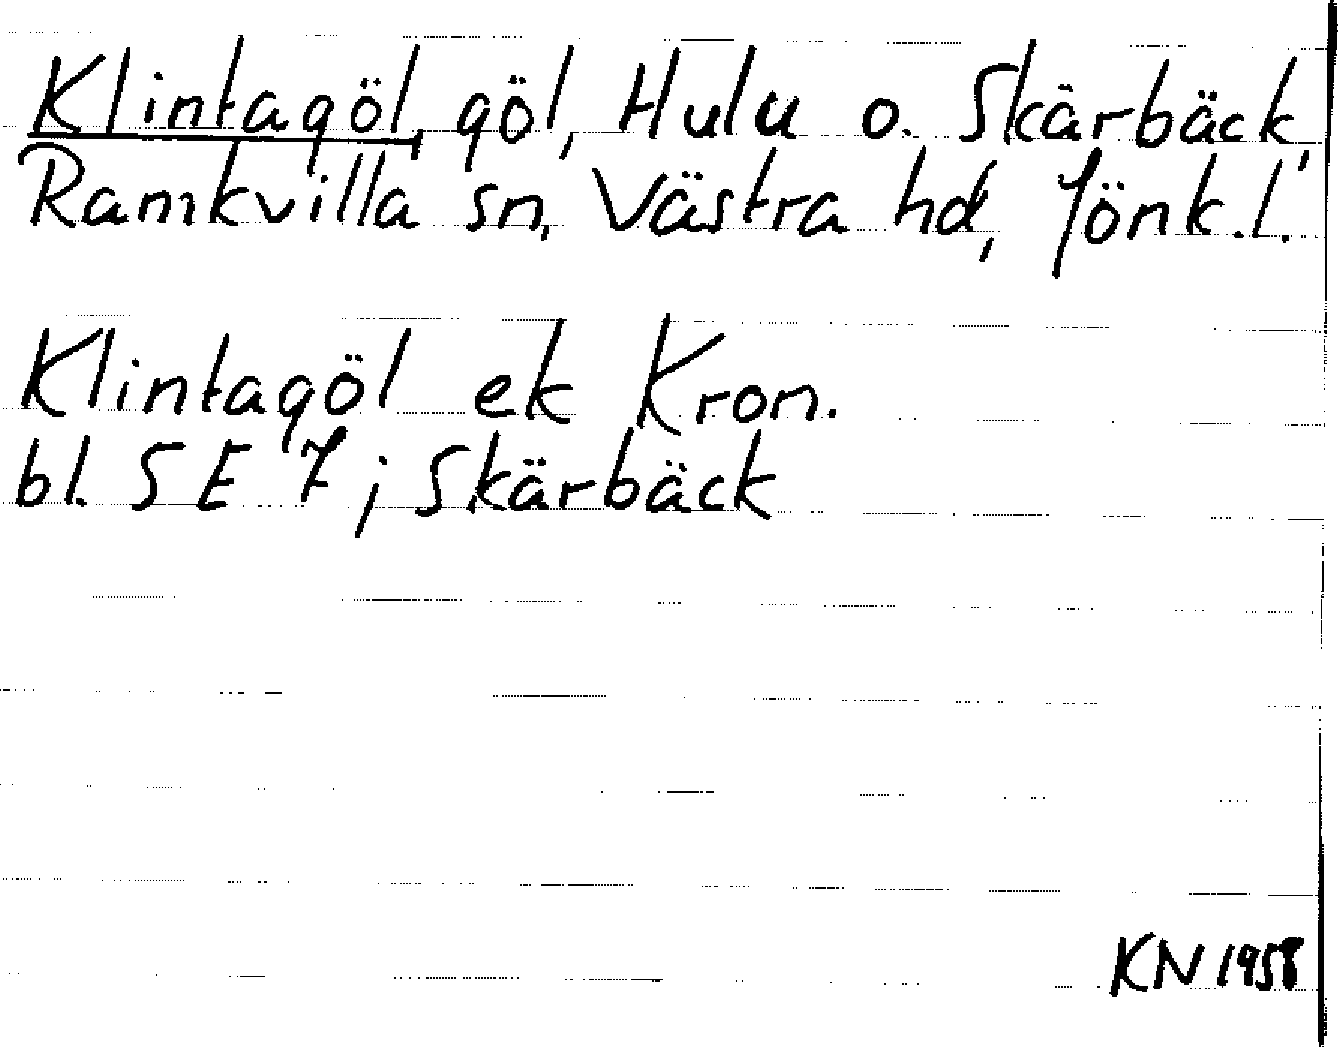 Klintagöl, göl, Hulu o. Skärbäck,
Ramkvilla sn, Västra hd, Jönk.l.
Klintagöl ek Kron.
bl. 5 E 7; Skärbäck
KN 1958